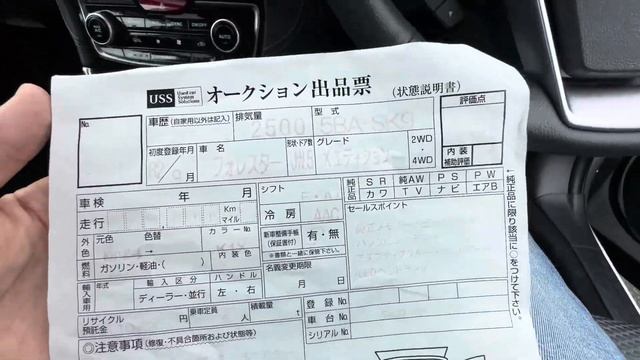 USS Used car System Solutions オークション出品票 (状態説明書)
No.
車歴 (自家用以外は記入) 排気量 型式 評価点
2500 5BA-SK9
初度登録年/月 車名 形状・ドア数 グレード 2WD・4WD 内装補助評価
フォレスター Xエディション
車検 年 月 シフト 純正品 SR 純AW PS PW
カワ TV ナビ エアB
走行 Km マイル 冷房 AAC セールスポイント
外装 元色 色替 カラーNo 新車整備手帳(保証書付) 有・無
色 → 内装色 *書類と一緒に保管下さい。
燃料 ガソリン・軽油・( ) 名義変更期限
輸入車用 年式 輸入区分 ハンドル 月 日
ディーラー・並行 左・右
リサイクル預託金 円 乗車定員 人 積載量 t 登録No
車台No
シリアルNo
◎注意事項 (修復・不具合箇所および状態等)
←純正品に限り該当に○をつけて下さい。